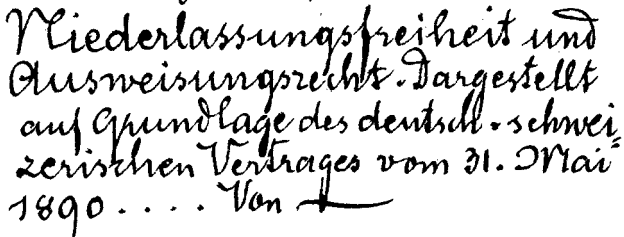 Niederlassungsfreiheit und
Ausweisungsrecht. Dargestellt
auf Grundlage des deutsch-schwei=
zerischen Vertrages vom 31. Mai
1890 . . . . Von —